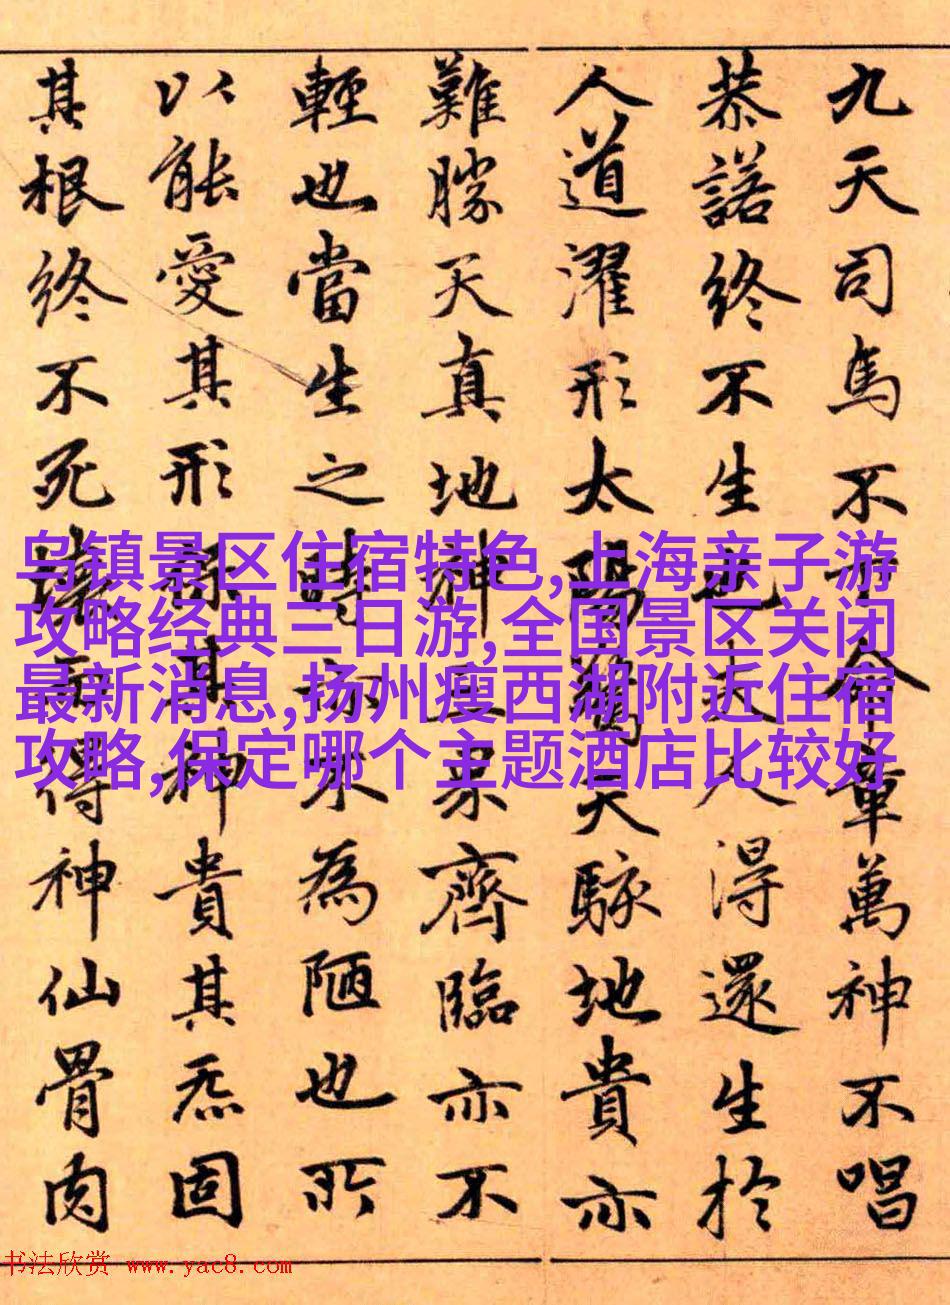 九天司馬不下命章萬神不唱
恭諾終不生也夫人得還生於
人道濯形太陽驚天駭地貴亦
難勝天真地神三界齊臨亦不
輕也當生之時亦不為陋也所
以能愛其形保其神貴其炁固
其根終不死壞而得神仙骨肉
乌镇景区住宿特色,上海亲子游
攻略经典三日游,全国景区关闭
最新消息,扬州瘦西湖附近住宿
攻略,保定哪个主题酒店比较好
书法欣赏 www.yac8.com